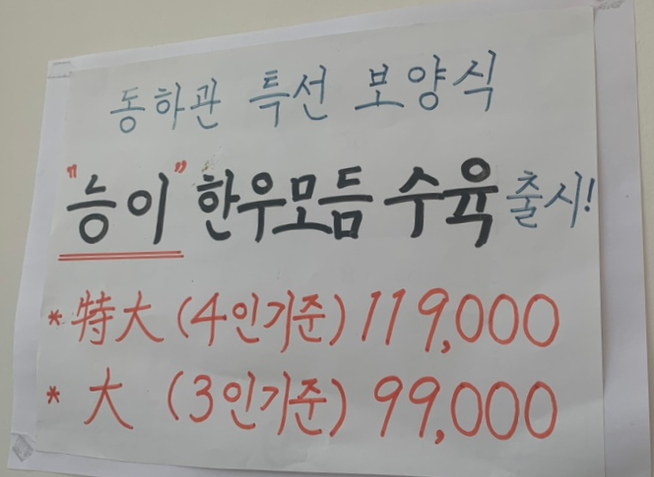 동하관 특선 보양식
"능이" 한우모듬 수육 출시!
* 特大 (4인기준) 119,000
* 大 (3인기준) 99,000